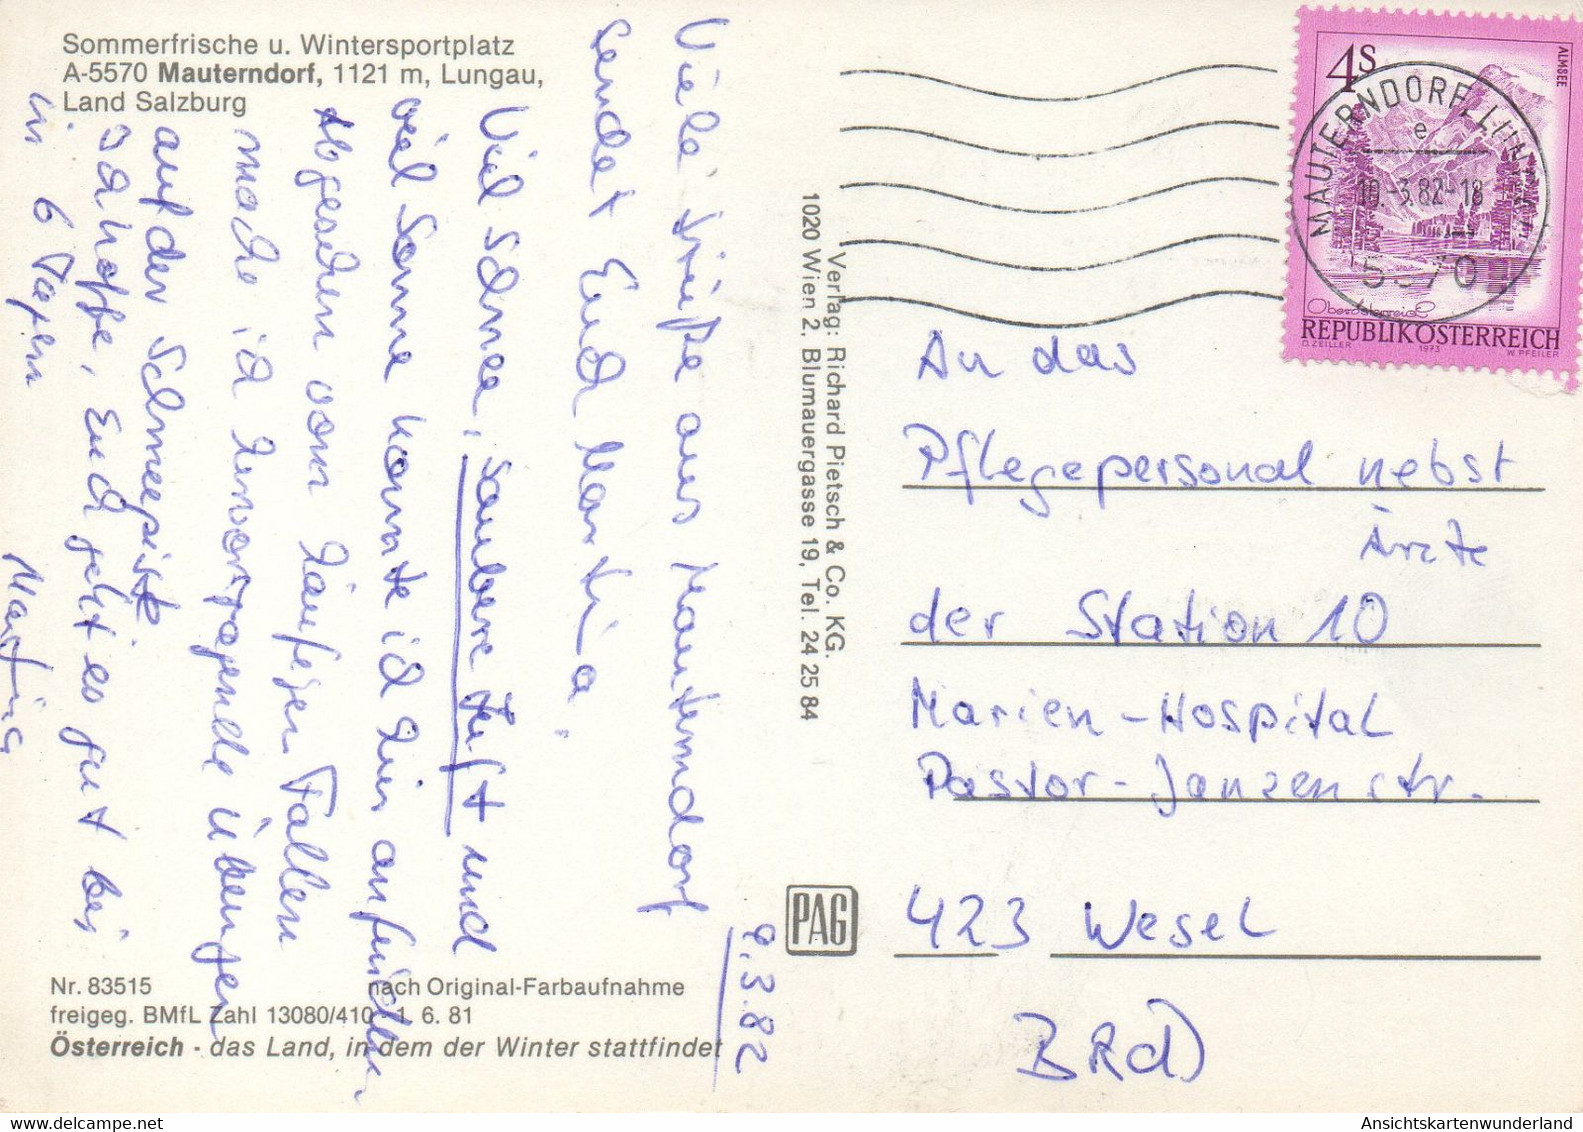 Sommerfrische u. Wintersportplatz
A-5570 Mauterndorf, 1121 m, Lungau,
Land Salzburg
Viele Grüße aus Mauterndorf
sendet Euch Martina.
Viel Schnee, saubere Luft und
viel Sonne konnte ich hier anfinden.
Abgesehen vom häufigen Fallen
mache ich hervorragende Übungen
auf der Schneepiste
Ich hoffe, Euch geht es gut bis
in 6 Tagen
Martina
9.3.82
Nr. 83515 nach Original-Farbaufnahme
freigeg. BMfL Zahl 13080/410 1. 6. 81
Österreich - das Land, in dem der Winter stattfindet
Verlag: Richard Pietsch & Co. KG.
1020 Wien 2, Blumauergasse 19, Tel. 24 25 84
PAG
4S
ALMSEE
MAUTERNDORF, LUNGAU
e
10.-3.82-18
5570
Oberösterreich
REPUBLIK ÖSTERREICH
O. ZEILLER 1973 W. PFEILER
An das
Pflegepersonal nebst
Ärzte
der Station 10
Marien-Hospital
Pastor-Janzenstr.
423 Wesel
BRD
Ansichtskartenwunderland